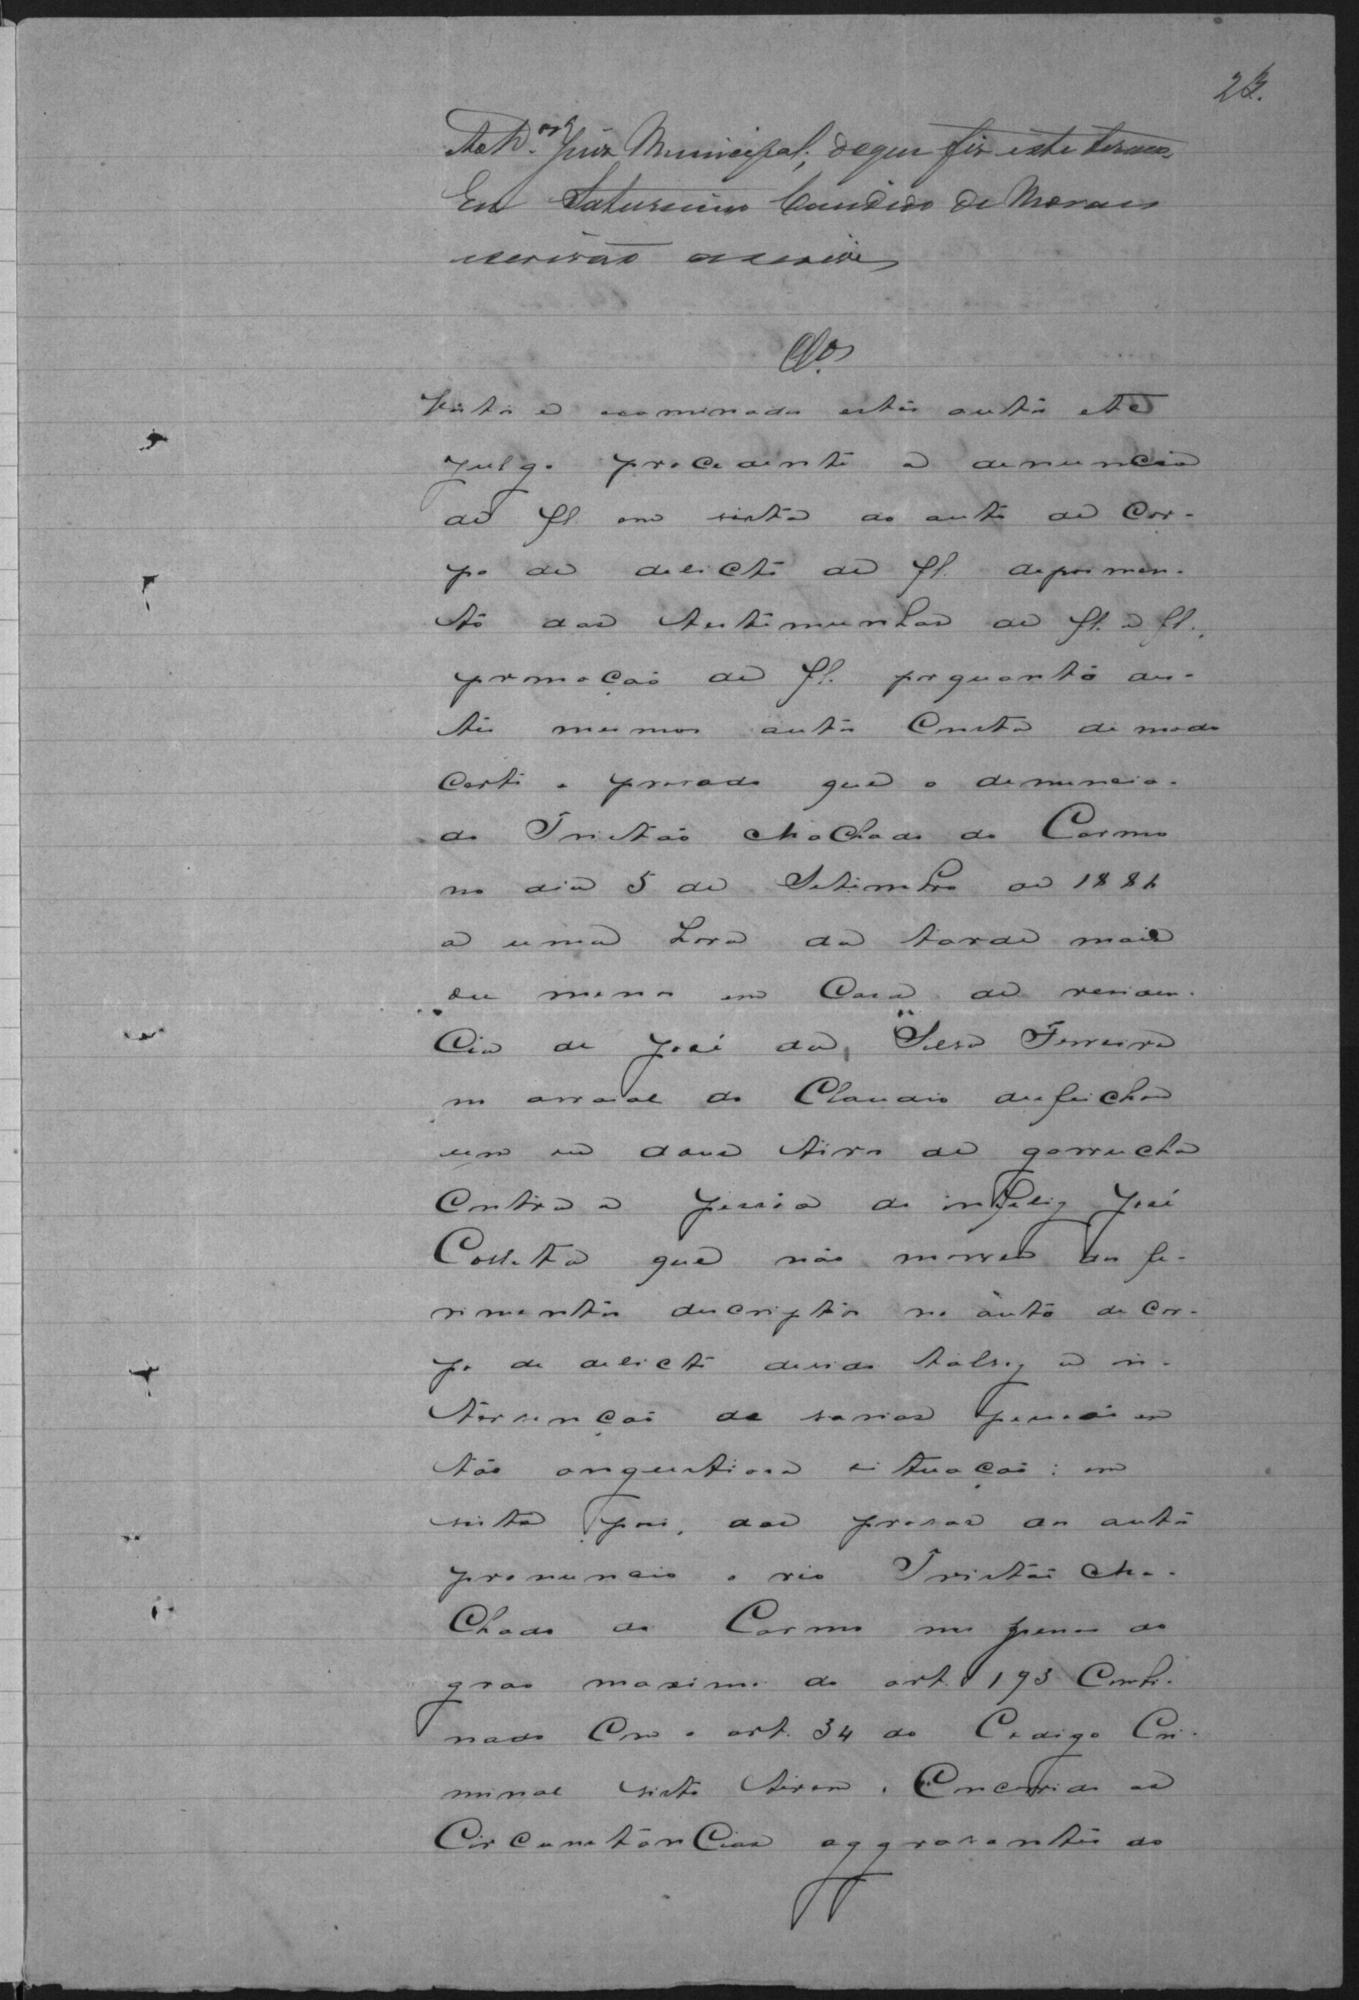 23.
Juiz Municipal, de que fiz este termo
Eu Saturnino Candido de Moraes
escrivão escrevi
Cls.
Vistos e examinados estes autos etc
julgo procedente a denuncia
de fl em vista do auto de cor-
po de delicto de fl. depoimen-
to das testemunhas de fl. a fl.,
promoção de fl. porquanto des-
tes mesmos autos consta de modo
certo e provado que o denuncia-
do Tristão Machado do Carmo
no dia 5 de Setembro de 1886
a uma hora da tarde mais
ou menos em casa de residen-
cia de José da Silva Ferreira
no arraial do Claudio desfechou
um ou dous tiros de garrucha
contra a pessoa do infeliz José
que não morreu dos fe-
rimentos descriptos no auto de cor-
po de delicto devido talvez a in-
tervenção de varias pessoas em
tão angustiosa situação: em
vista pois, das provas dos autos
pronuncio o reo Tristão Ma-
chado do Carmo nas penas do
grao maximo do art. 193 combi-
nado com o art. 34 do Codigo Cri-
minal visto terem concorrido as
circumstancias aggravantes do